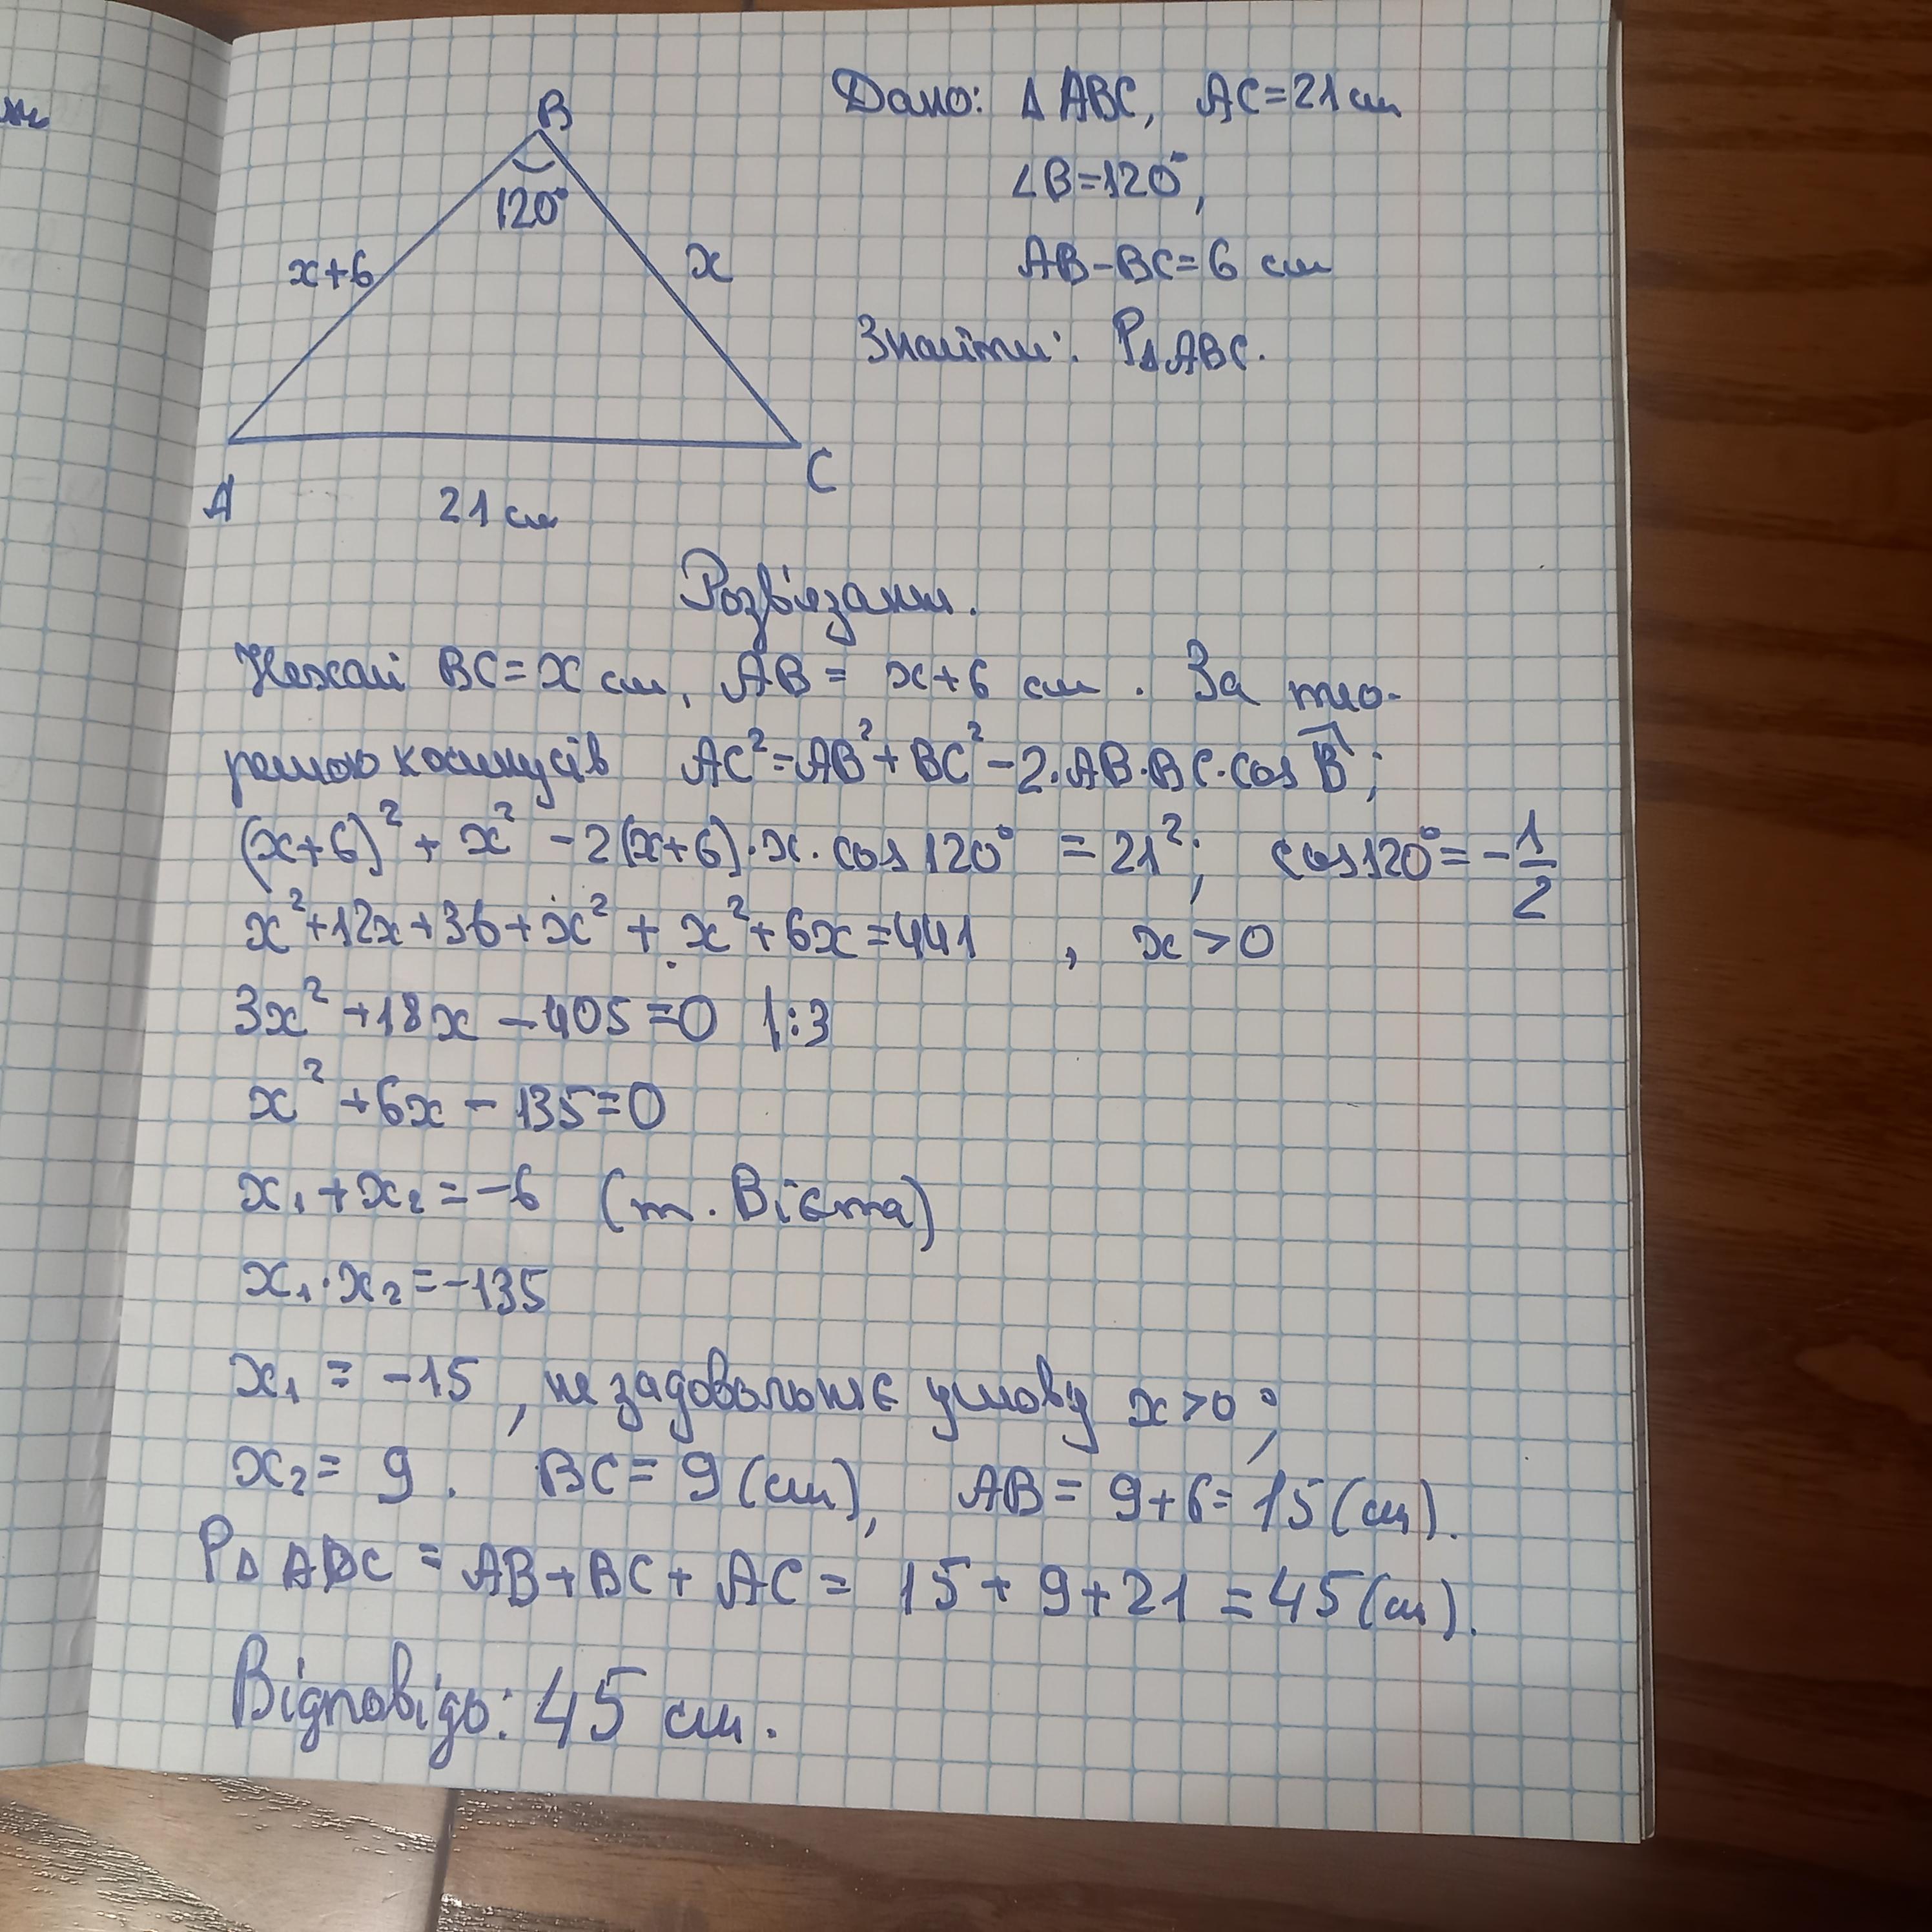 B
120°
x+6
x
A
C
21 см
Дано: Δ ABC, AC=21 см
∠B=120°,
AB-BC=6 см
Знайти: PΔABC.
Розв'язання.
Нехай BC=x см, AB = x+6 см. За тео-
ремою косинусів AC²=AB²+BC²-2·AB·BC·cos B;
(x+6)² + x² -2(x+6)·x·cos 120° = 21²; cos120°=-1/2
x²+12x+36+x² + x²+6x=441 , x>0
3x²+18x-405=0 |:3
x²+6x-135=0
x₁+x₂=-6 (т. Вієта)
x₁·x₂=-135
x₁ = -15, не задовольняє умову x>0;
x₂= 9. BC= 9 (см), AB= 9+6=15 (см).
PΔABC = AB+BC+AC= 15+9+21=45 (см).
Відповідь: 45 см.